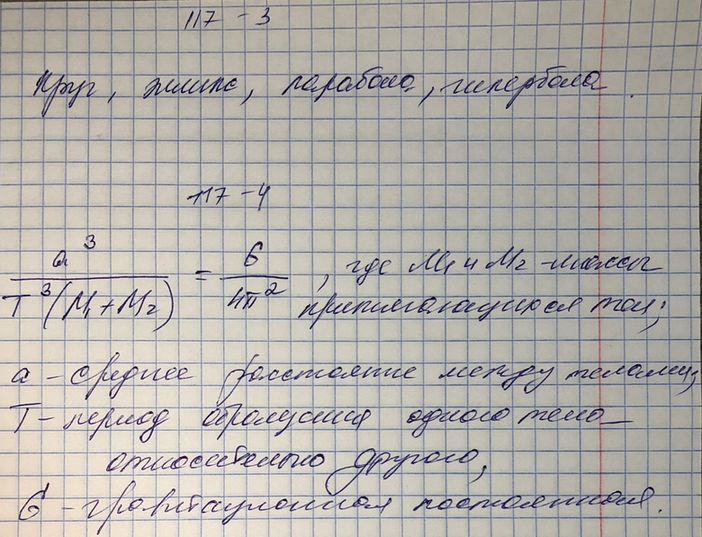 117 - 3
Круг, эллипс, парабола, гипербола.
117 - 4
a³ / T³(M₁ + M₂) = G / 4π², где M₁ и M₂ - массы
притягивающихся тел;
a - среднее расстояние между телами;
T - период обращения одного тела
относительно другого,
G - гравитационная постоянная.